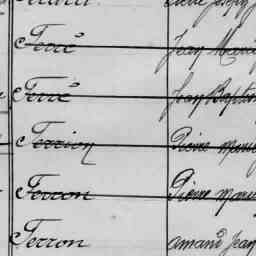 Ferré Jean Marie
Ferré Jean Baptis
Ferrion Pierre Marie
Ferron Pierre Marie
Ferron Amand Jean